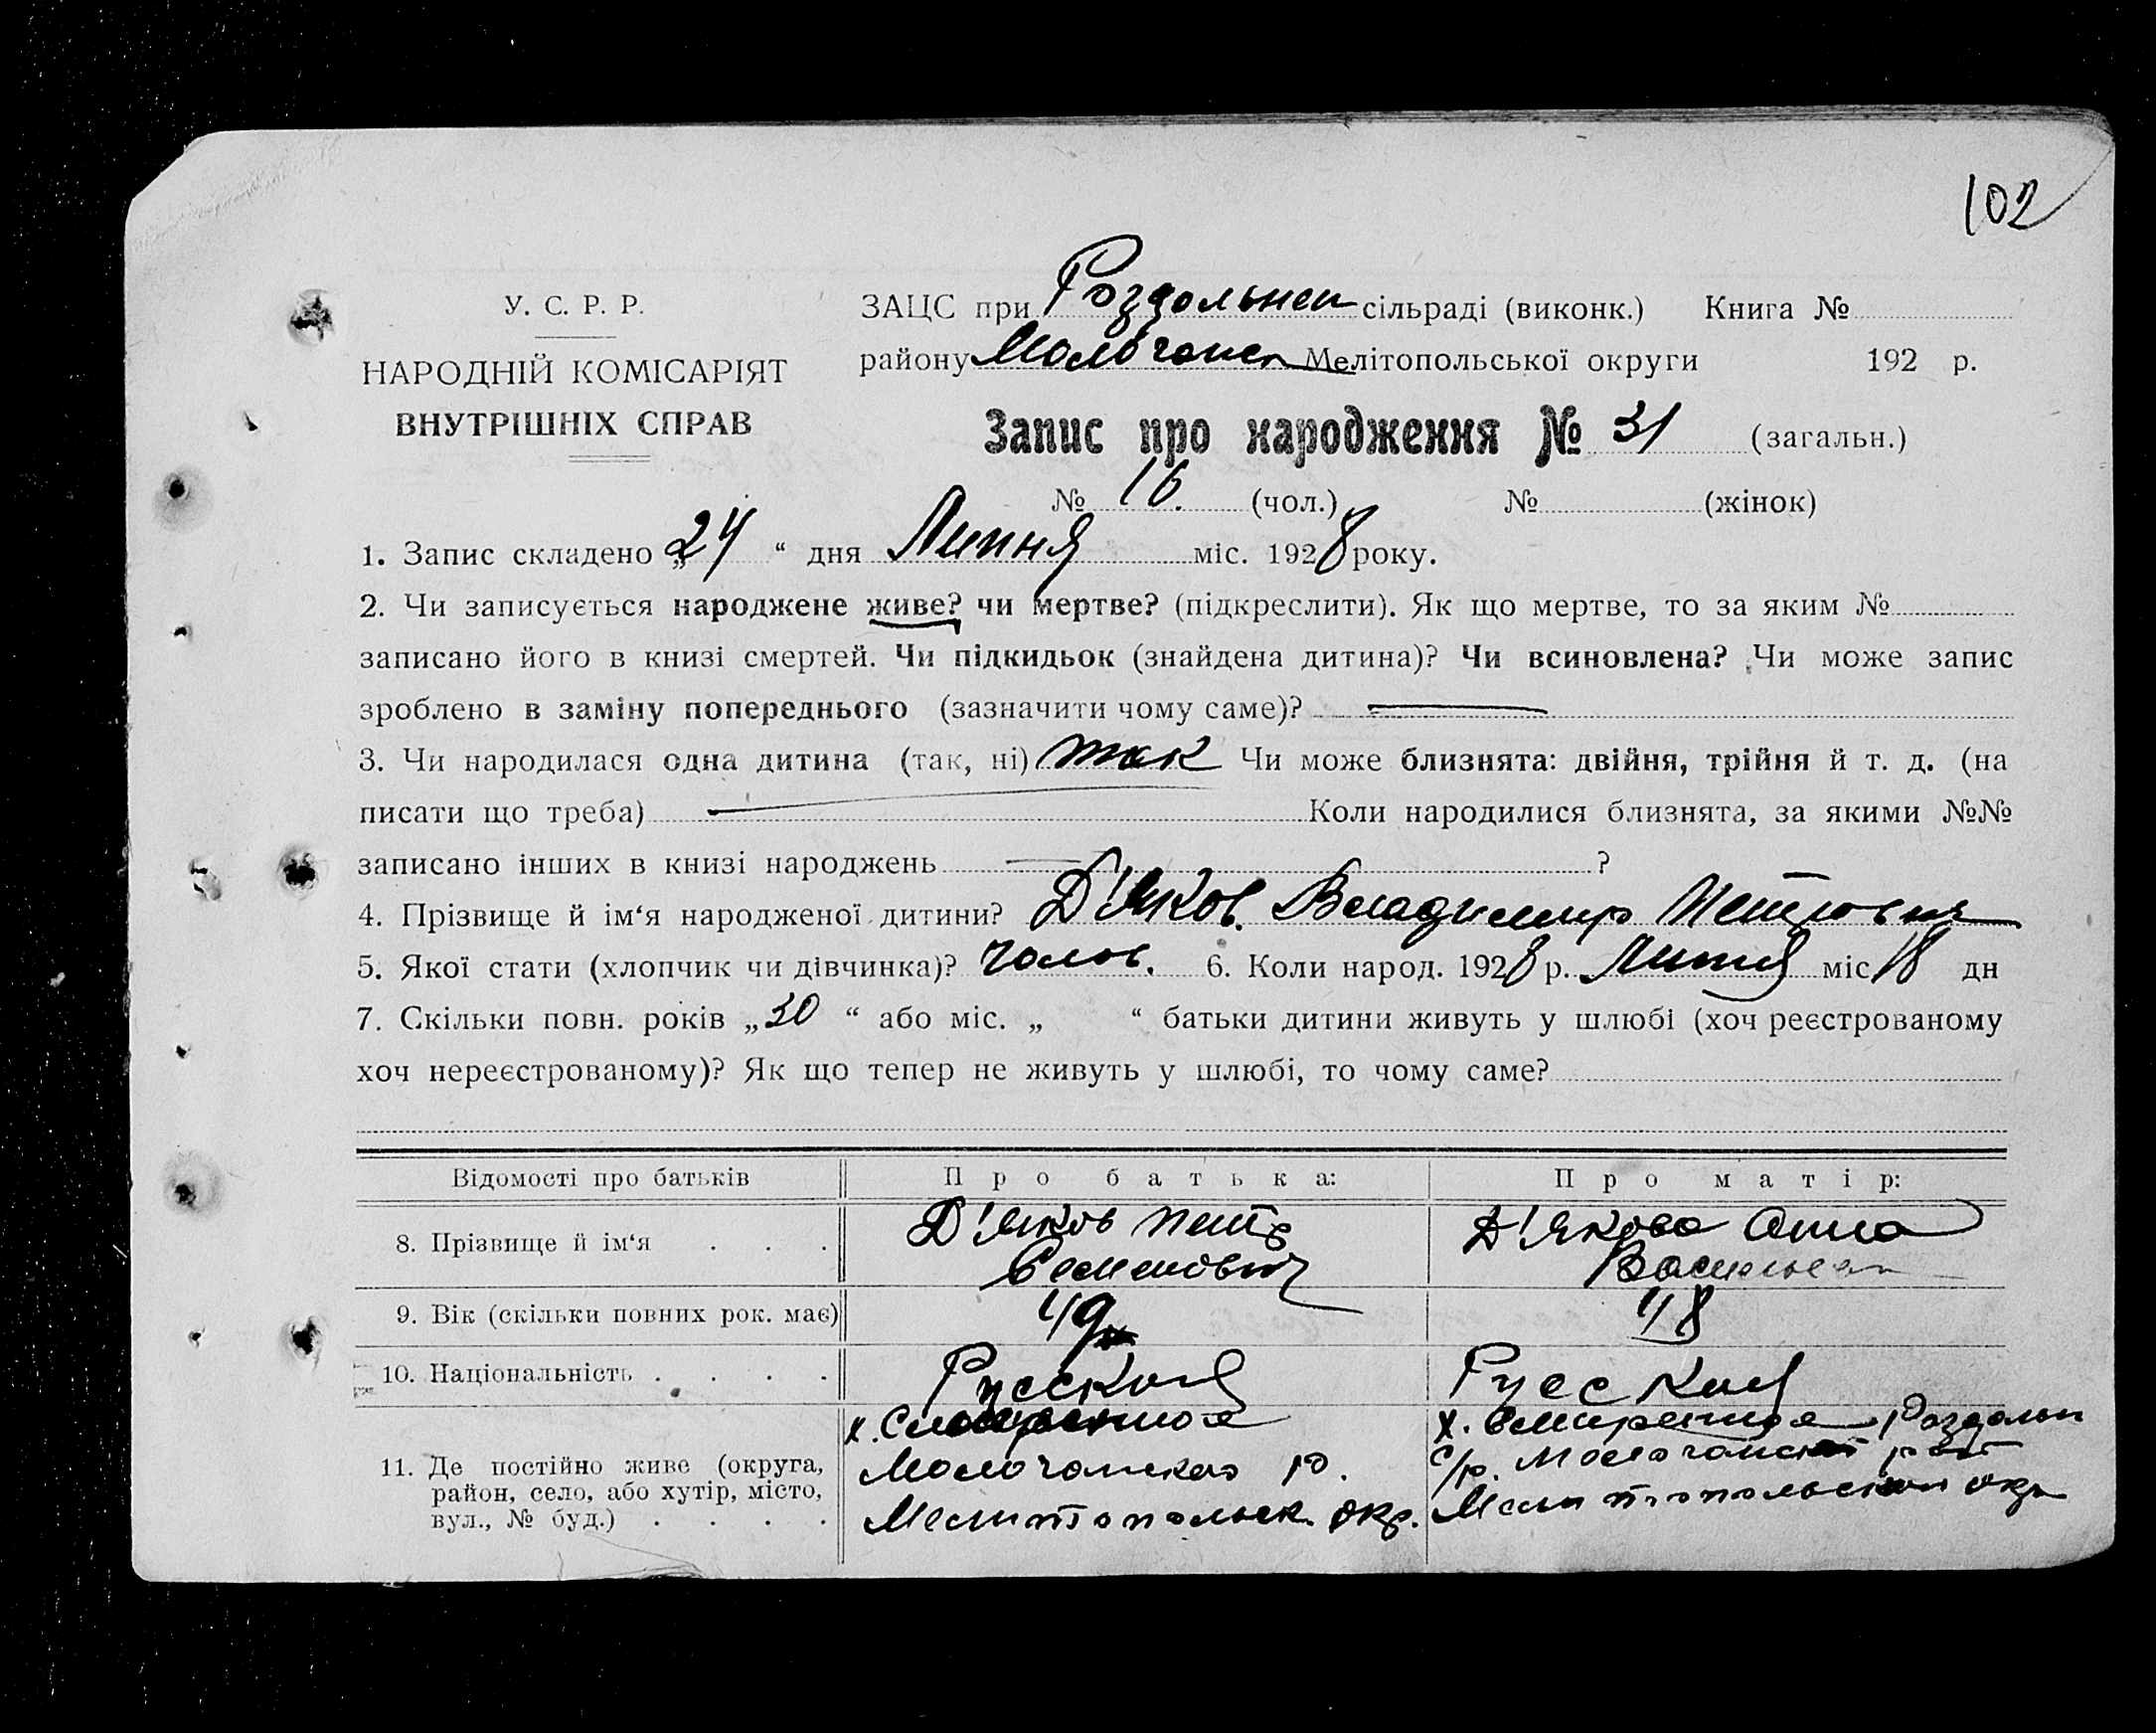 102
У. С. Р. Р.
НАРОДНІЙ КОМІСАРІЯТ
ВНУТРІШНІХ СПРАВ
ЗАЦС при Роздольнен сільраді (виконк.) Книга №
району Молочанск Мелітопольської округи 192 р.
Запис про народження № 31 (загальн.)
№ 16. (чол.) № (жінок)
1. Запис складено „24“ дня Липня міс. 1928 року.
2. Чи записується народжене живе? чи мертве? (підкреслити). Як що мертве, то за яким №
записано його в книзі смертей. Чи підкидьок (знайдена дитина)? Чи всиновлена? Чи може запис
зроблено в заміну попереднього (зазначити чому саме)? —
3. Чи народилася одна дитина (так, ні) так Чи може близнята: двійня, трійня й т. д. (на
писати що треба) — Коли народилися близнята, за якими №№
записано інших в книзі народжень — ?
4. Прізвище й ім‘я народженої дитини? Д'яков. Владимир Петрович
5. Якої стати (хлопчик чи дівчинка)? Чолов. 6. Коли народ. 1928 р. Липня міс 18 дн
7. Скільки повн. років „30“ або міс. „ “ батьки дитини живуть у шлюбі (хоч реєстрованому
хоч нереєстрованому)? Як що тепер не живуть у шлюбі, то чому саме?
Відомості про батьків Про батька: Про матір:
8. Прізвище й ім‘я . . . Д'яков Петр Семенович Д'якова Анна
9. Вік (скільки повних рок. має) 49 48
10. Національність . . . . Русский Русская
11. Де постійно живе (округа, район, село, або хутір, місто, вул., № буд.) . . . .
х. Смиренное
Молочанского р.
Мелитопольск. окр.
х. Смиренное Роздольн
с/р. Молочанской
Мелитопольской окр